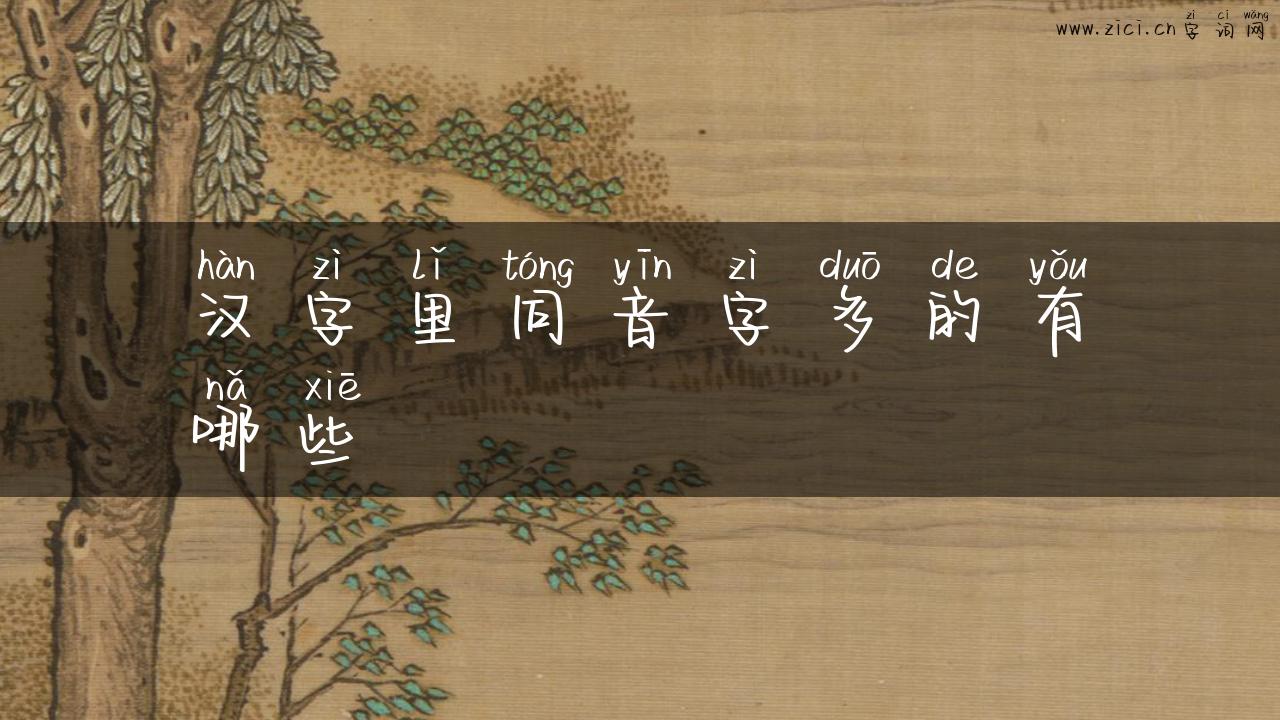 zì cí wǎng
www.zici.cn 字词网
hàn zì lǐ tóng yīn zì duō de yǒu
汉字里同音字多的有
nǎ xiē
哪些